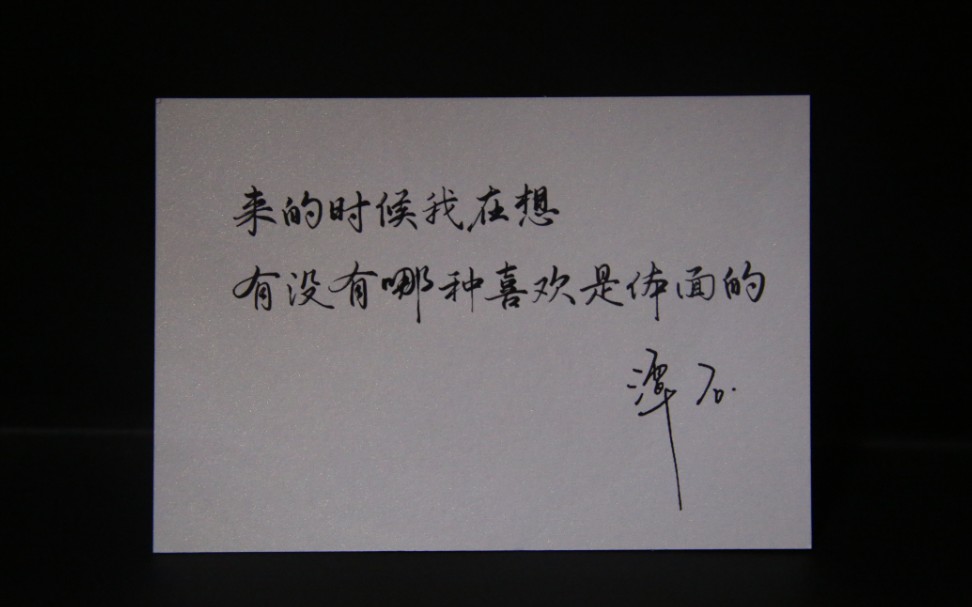 来的时候我在想
有没有哪种喜欢是体面的
潭石.